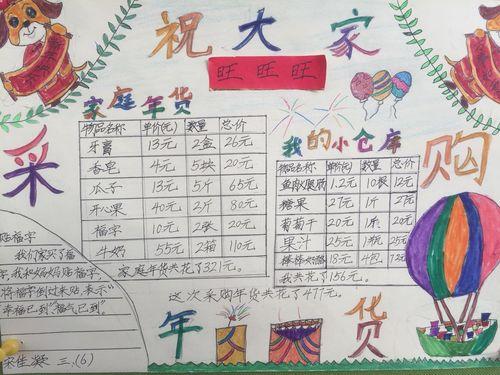 祝大家
旺旺旺
采购年货
家庭年货
物品名称 单价(元) 数量 总价
牙膏 13元 2盒 26元
香皂 4元 5块 20元
瓜子 13元 5斤 65元
开心果 40元 2斤 80元
福字 10元 2张 20元
牛奶 55元 2箱 110元
家庭年货共花了321元。
我的小仓库
物品名称 单价(元) 数量 总价
1.2元 10根 12元
糖果 27元 1斤 27元
葡萄干 20元 1斤 20元
果汁 25元 1瓶 25元
18元 4包 72元
我共花了156元。
这次采购年货共花了477元。
贴福字
我们家买了福
字,我和妈妈贴福字,
将福字倒过来贴,表示“
幸福已到”“福气已到”。
宋佳凝 三.(6)